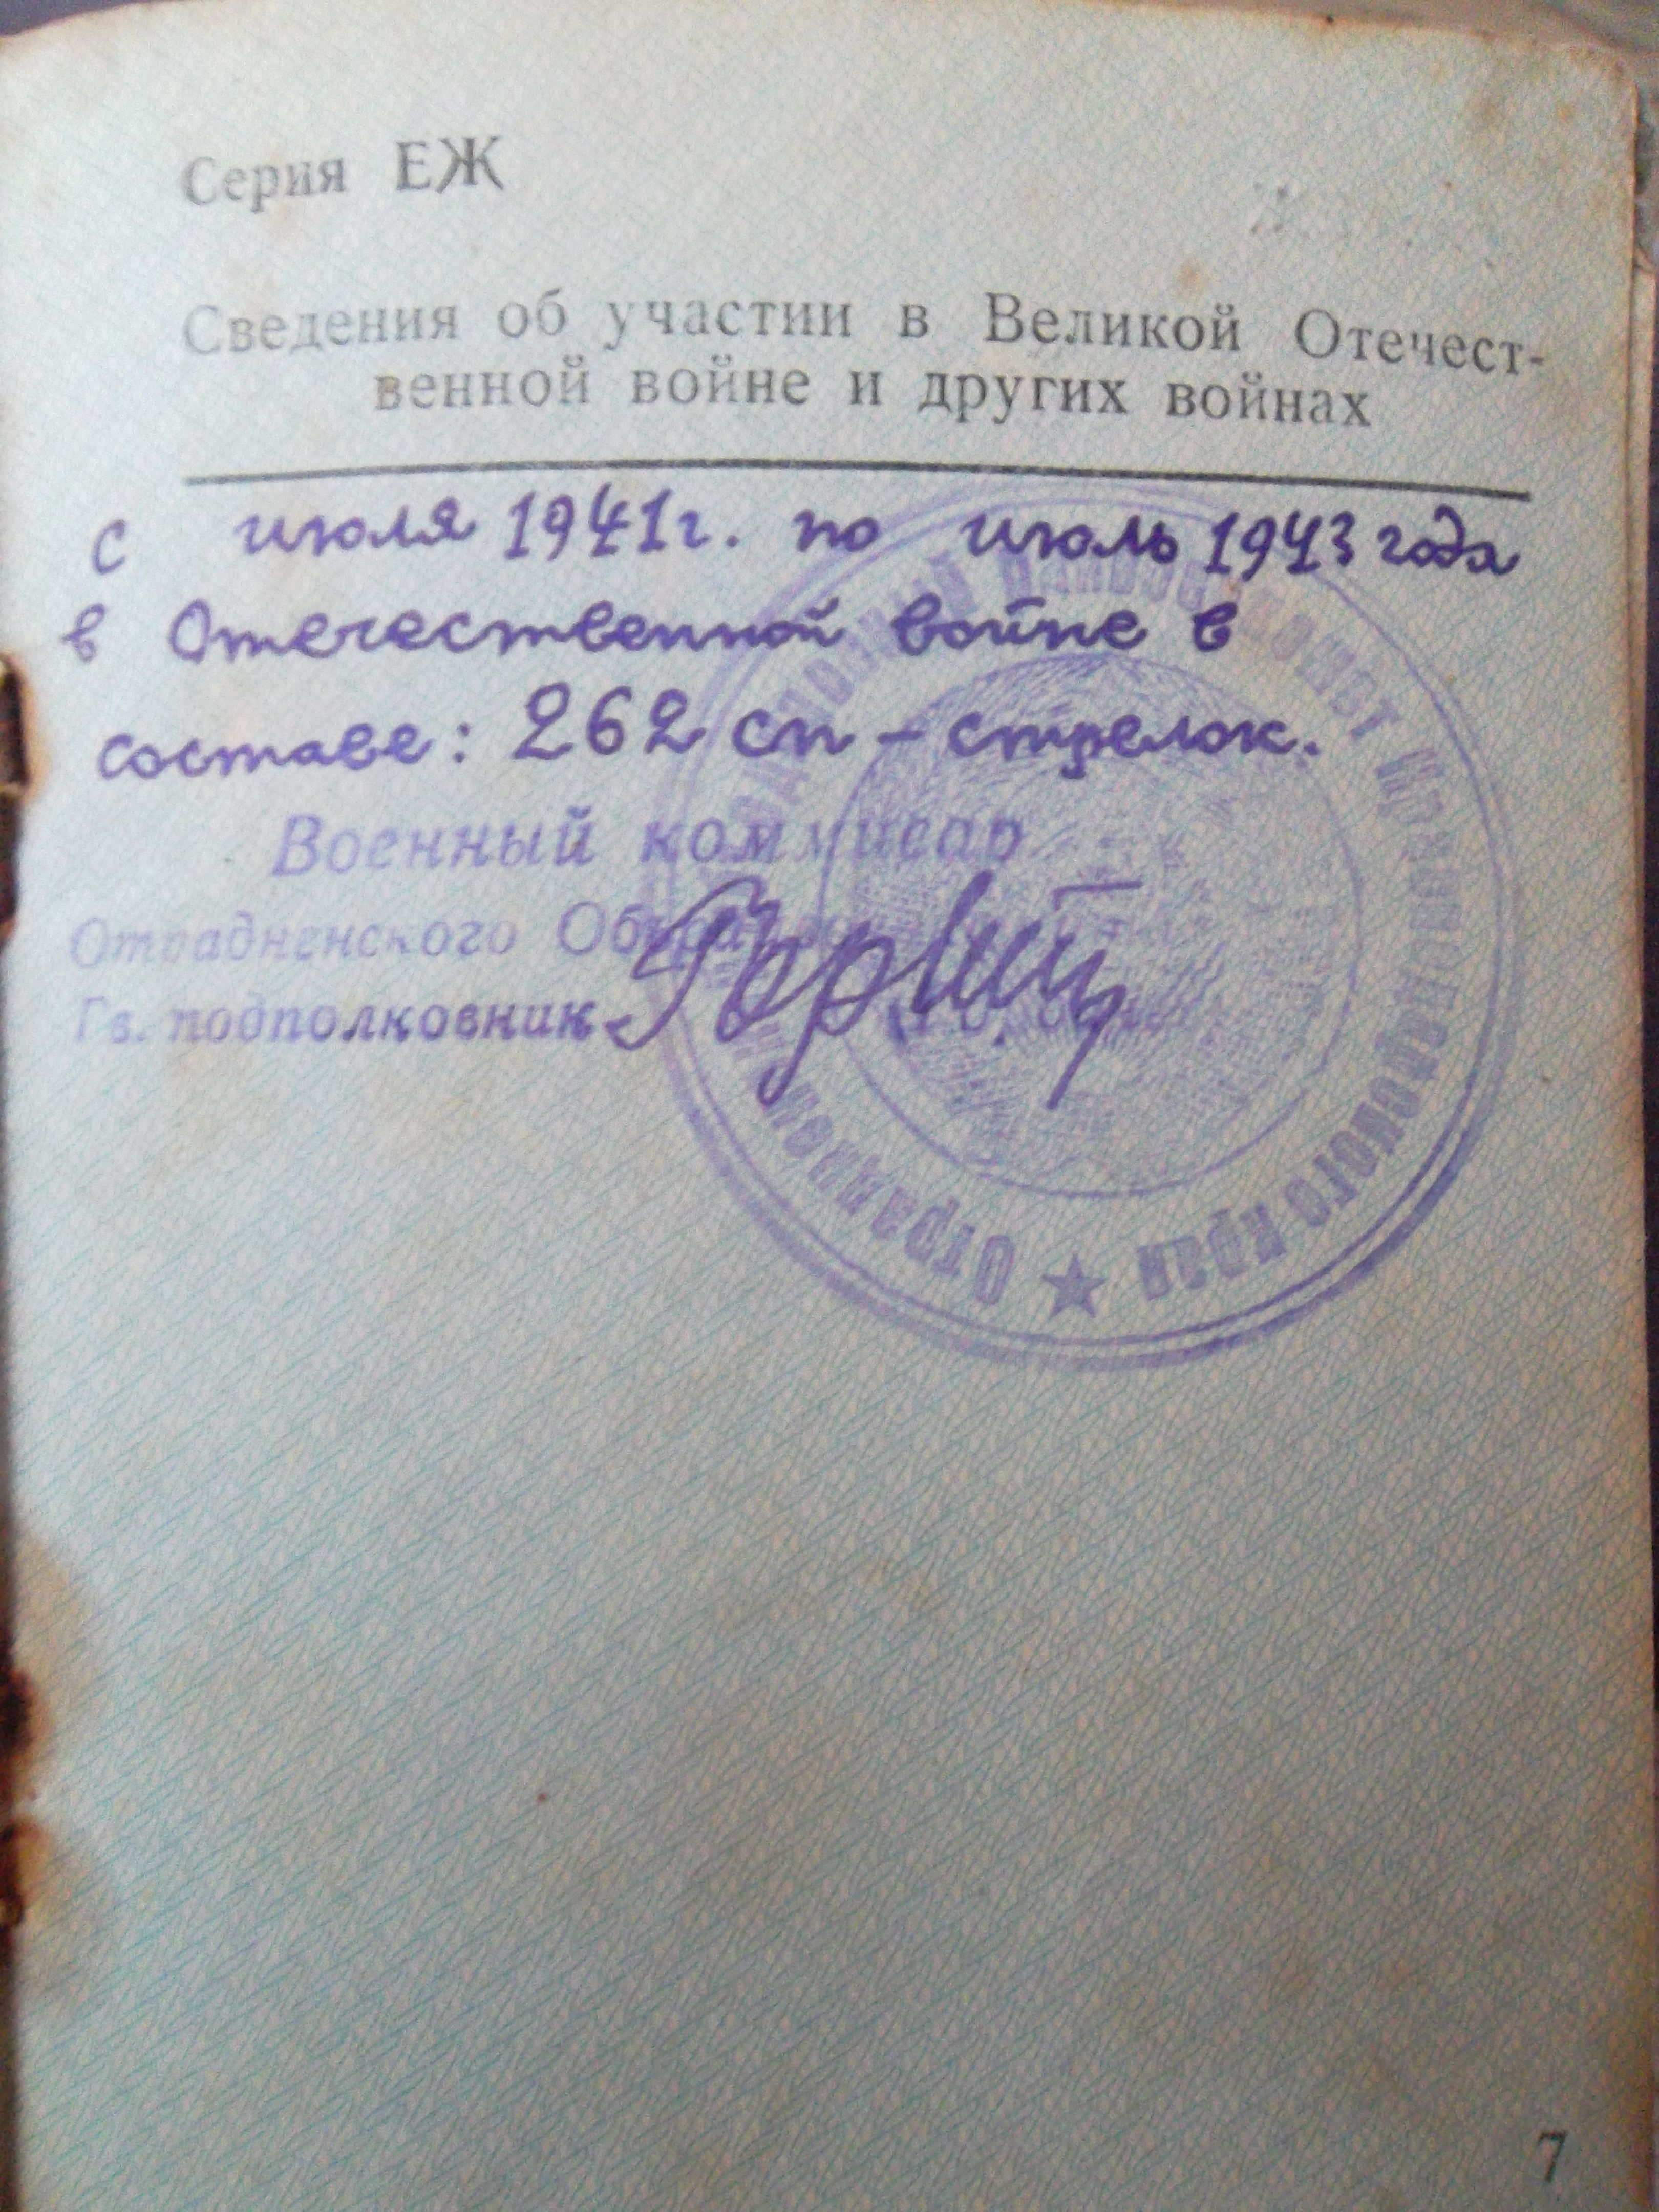 Серия ЕЖ
Сведения об участии в Великой Отечест-
венной войне и других войнах
с июля 1941г. по июль 1943 года
в Отечественной войне в
составе: 262 сп – стрелок.
Военный комиссар
Отрадненского
Гв. подполковник
края
7